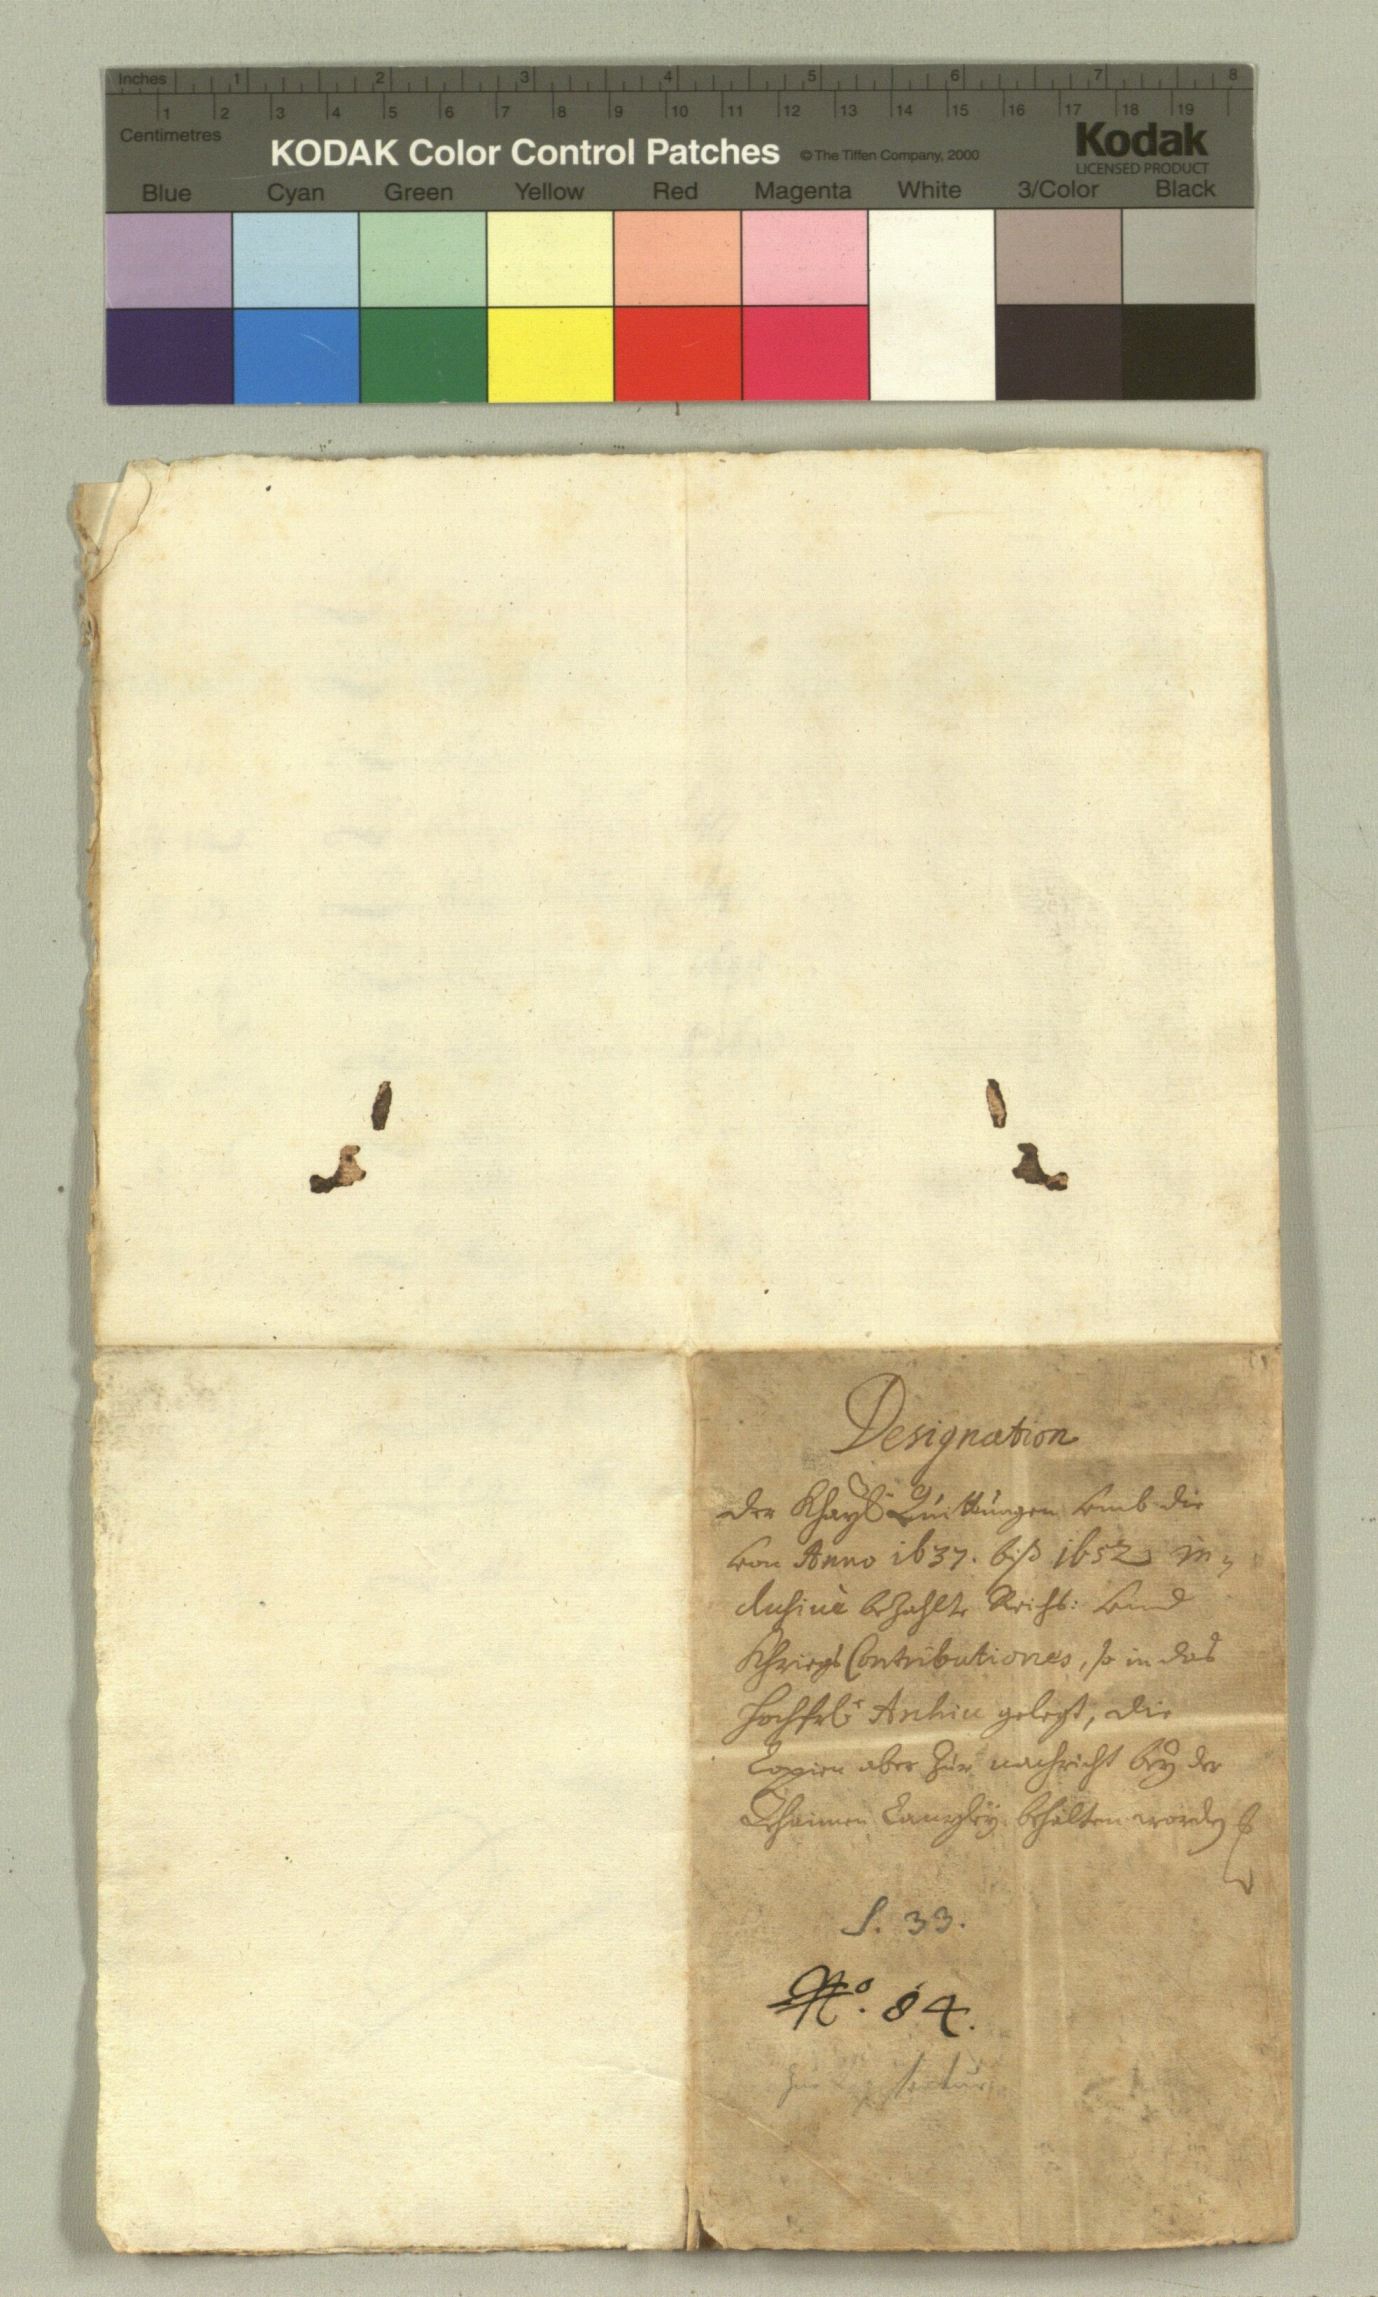 Inches 1 2 3 4 5 6 7 8
1 2 3 4 5 6 7 8 9 10 11 12 13 14 15 16 17 18 19
Centimetres
KODAK Color Control Patches © The Tiffen Company, 2000 Kodak
LICENSED PRODUCT
Blue Cyan Green Yellow Red Magenta White 3/Color Black
Designation
der Khayß: Quittungen umb die
von Anno 1637. biß 1652 in,
clusivè bezahlte Reichs: und
Khriegs Contributiones, so in das
hochfrl: Archiv gelegt, die
Copien aber zur nachricht bey der
Gehaimen Canzley behalten worden
S. 33.
No. 84.
zur